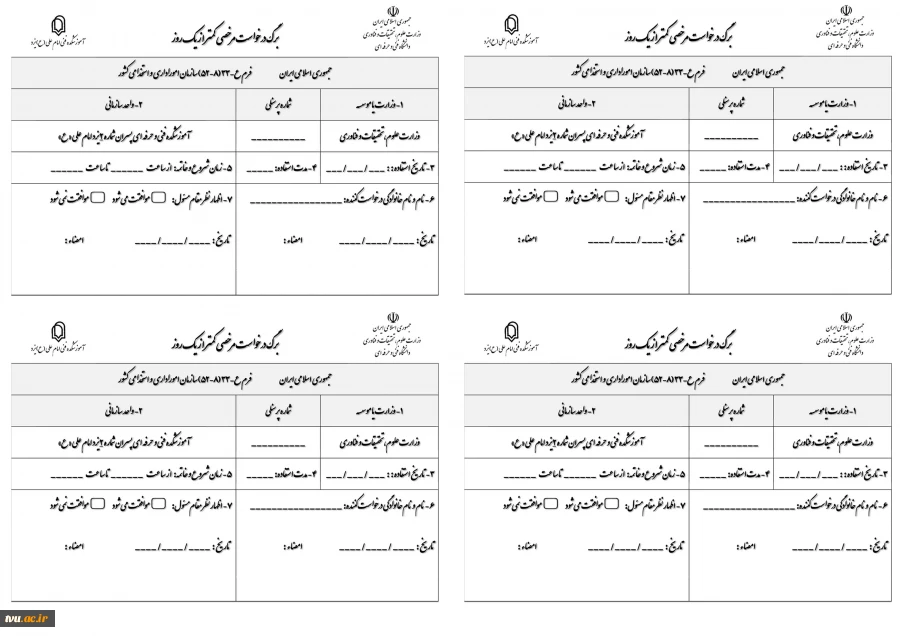 جمهوری اسلامی ایران
وزارت علوم، تحقیقات و فناوری
دانشگاه فنی و حرفه ای
برگ درخواست مرخصی کمتر از یک روز
آموزشکده فنی امام علی (ع) یزد
جمهوری اسلامی ایران فرم ع-۳۳(۸-۵۲) سازمان امور اداری و استخدامی کشور
۱- وزارت یا موسسه شماره پرسنلی ۲- واحد سازمانی
وزارت علوم، تحقیقات و فناوری __________ آموزشکده فنی و حرفه ای پسران شماره ۲ یزد امام علی (ع)
۳- تاریخ استفاده: : ___ /___ /___ ۴- مدت استفاده: _____ ۵- زمان شروع و خاتمه: از ساعت ______ تا ساعت ______
۶- نام و نام خانوادگی درخواست کننده: _________________ ۷- اظهار نظر مقام مسئول: موافقت می شود موافقت نمی شود
تاریخ: ____ /____ /____ امضاء : تاریخ: ____ /____ /____ امضاء :
جمهوری اسلامی ایران
وزارت علوم، تحقیقات و فناوری
دانشگاه فنی و حرفه ای
برگ درخواست مرخصی کمتر از یک روز
آموزشکده فنی امام علی (ع) یزد
جمهوری اسلامی ایران فرم ع-۳۳(۸-۵۲) سازمان امور اداری و استخدامی کشور
۱- وزارت یا موسسه شماره پرسنلی ۲- واحد سازمانی
وزارت علوم، تحقیقات و فناوری __________ آموزشکده فنی و حرفه ای پسران شماره ۲ یزد امام علی (ع)
۳- تاریخ استفاده: : ___ /___ /___ ۴- مدت استفاده: _____ ۵- زمان شروع و خاتمه: از ساعت ______ تا ساعت ______
۶- نام و نام خانوادگی درخواست کننده: _________________ ۷- اظهار نظر مقام مسئول: موافقت می شود موافقت نمی شود
تاریخ: ____ /____ /____ امضاء : تاریخ: ____ /____ /____ امضاء :
جمهوری اسلامی ایران
وزارت علوم، تحقیقات و فناوری
دانشگاه فنی و حرفه ای
برگ درخواست مرخصی کمتر از یک روز
آموزشکده فنی امام علی (ع) یزد
جمهوری اسلامی ایران فرم ع-۳۳(۸-۵۲) سازمان امور اداری و استخدامی کشور
۱- وزارت یا موسسه شماره پرسنلی ۲- واحد سازمانی
وزارت علوم، تحقیقات و فناوری __________ آموزشکده فنی و حرفه ای پسران شماره ۲ یزد امام علی (ع)
۳- تاریخ استفاده: : ___ /___ /___ ۴- مدت استفاده: _____ ۵- زمان شروع و خاتمه: از ساعت ______ تا ساعت ______
۶- نام و نام خانوادگی درخواست کننده: _________________ ۷- اظهار نظر مقام مسئول: موافقت می شود موافقت نمی شود
تاریخ: ____ /____ /____ امضاء : تاریخ: ____ /____ /____ امضاء :
جمهوری اسلامی ایران
وزارت علوم، تحقیقات و فناوری
دانشگاه فنی و حرفه ای
برگ درخواست مرخصی کمتر از یک روز
آموزشکده فنی امام علی (ع) یزد
جمهوری اسلامی ایران فرم ع-۳۳(۸-۵۲) سازمان امور اداری و استخدامی کشور
۱- وزارت یا موسسه شماره پرسنلی ۲- واحد سازمانی
وزارت علوم، تحقیقات و فناوری __________ آموزشکده فنی و حرفه ای پسران شماره ۲ یزد امام علی (ع)
۳- تاریخ استفاده: : ___ /___ /___ ۴- مدت استفاده: _____ ۵- زمان شروع و خاتمه: از ساعت ______ تا ساعت ______
۶- نام و نام خانوادگی درخواست کننده: _________________ ۷- اظهار نظر مقام مسئول: موافقت می شود موافقت نمی شود
تاریخ: ____ /____ /____ امضاء : تاریخ: ____ /____ /____ امضاء :
tvu.ac.ir